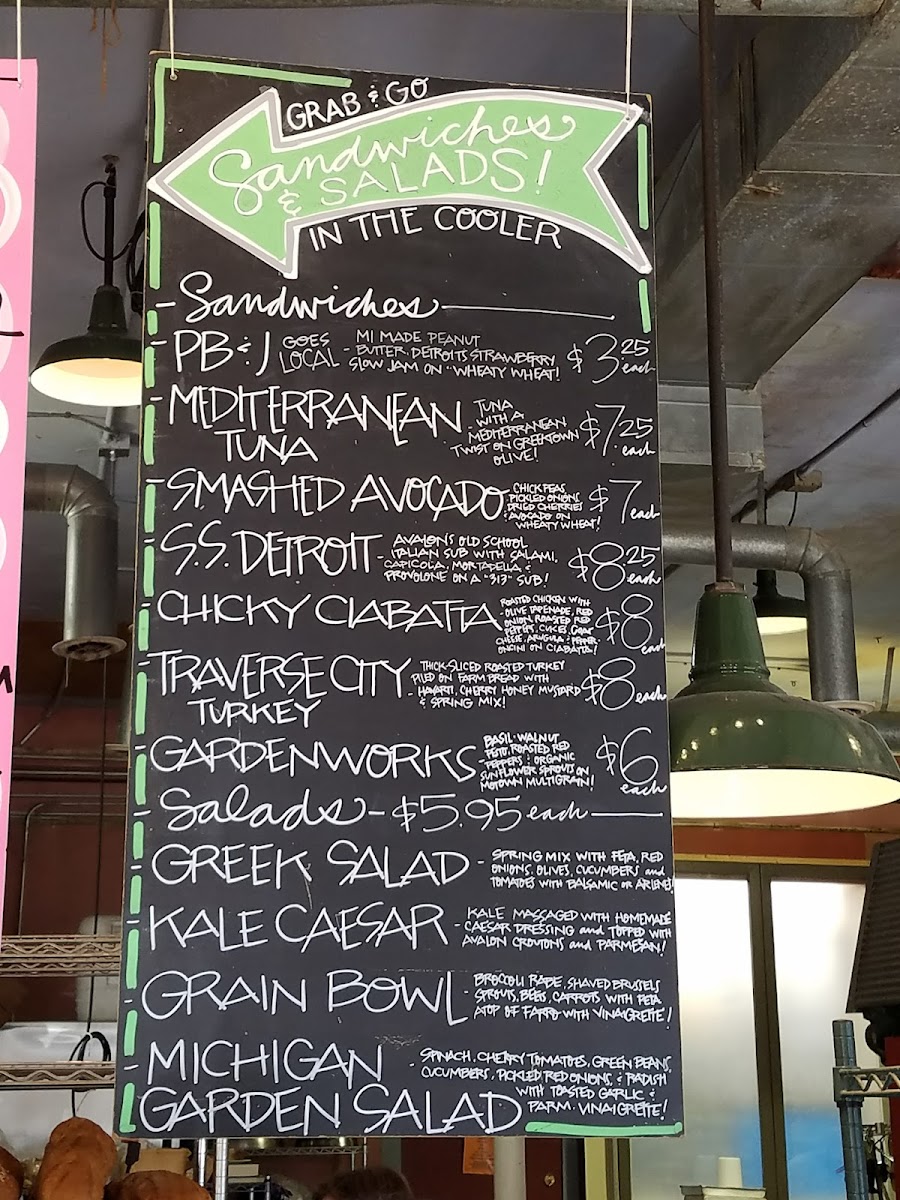 GRAB & GO
Sandwiches
& SALADS!
IN THE COOLER
- Sandwiches
- PB & J GOES LOCAL - MI MADE PEANUT
BUTTER, DETROITS STRAWBERRY
SLOW JAM ON "WHEATY WHEAT! $3.25 each
- MEDITERRANEAN
TUNA
- TUNA
WITH A
MEDITERRANEAN
TWIST ON GREEKTOWN
OLIVE! $7.25 each
- SMASHED AVOCADO - CHICKPEAS
PICKLED ONIONS
DRIED CHERRIES
& AVOCADO ON
WHEATY WHEAT! $7 each
- S.S. DETROIT - AVALON'S OLD SCHOOL
ITALIAN SUB WITH SALAMI,
CAPICOLA, MORTADELLA, &
PROVOLONE ON A "313" SUB! $8.25 each
- CHICKY CIABATTA - ROASTED CHICKEN WITH
OLIVE TAPENADE, RED
ONION, ROASTED RED
PEPPERS, CUKES, GOAT
CHEESE, ARUGULA & PEPPER-
ONCINI ON CIABATTA! $8 each
- TRAVERSE CITY
TURKEY
- THICK-SLICED ROASTED TURKEY
PILED ON FARM BREAD WITH
HAVARTI, CHERRY HONEY MUSTARD
& SPRING MIX! $8 each
- GARDENWORKS - BASIL-WALNUT
PESTO, ROASTED RED
PEPPERS & ORGANIC
SUNFLOWER SPROUTS ON
MOTOWN MULTIGRAIN! $6 each
- Salads - $5.95 each
- GREEK SALAD - SPRING MIX WITH FETA, RED
ONIONS, OLIVES, CUCUMBERS and
TOMATOES WITH BALSAMIC OR
- KALE CAESAR - KALE MASSAGED WITH HOMEMADE
CAESAR DRESSING and TOPPED WITH
AVALON CROUTONS and PARMESAN!
- GRAIN BOWL - BROCCOLI RABE, SHAVED BRUSSELS
SPROUTS, BEETS, CARROTS WITH FETA
ATOP OF FARRO WITH VINAIGRETTE!
- MICHIGAN
GARDEN SALAD
- SPINACH, CHERRY TOMATOES, GREEN BEANS,
CUCUMBERS, PICKLED RED ONIONS, & RADISH
WITH TOASTED GARLIC &
PARM. VINAIGRETTE!